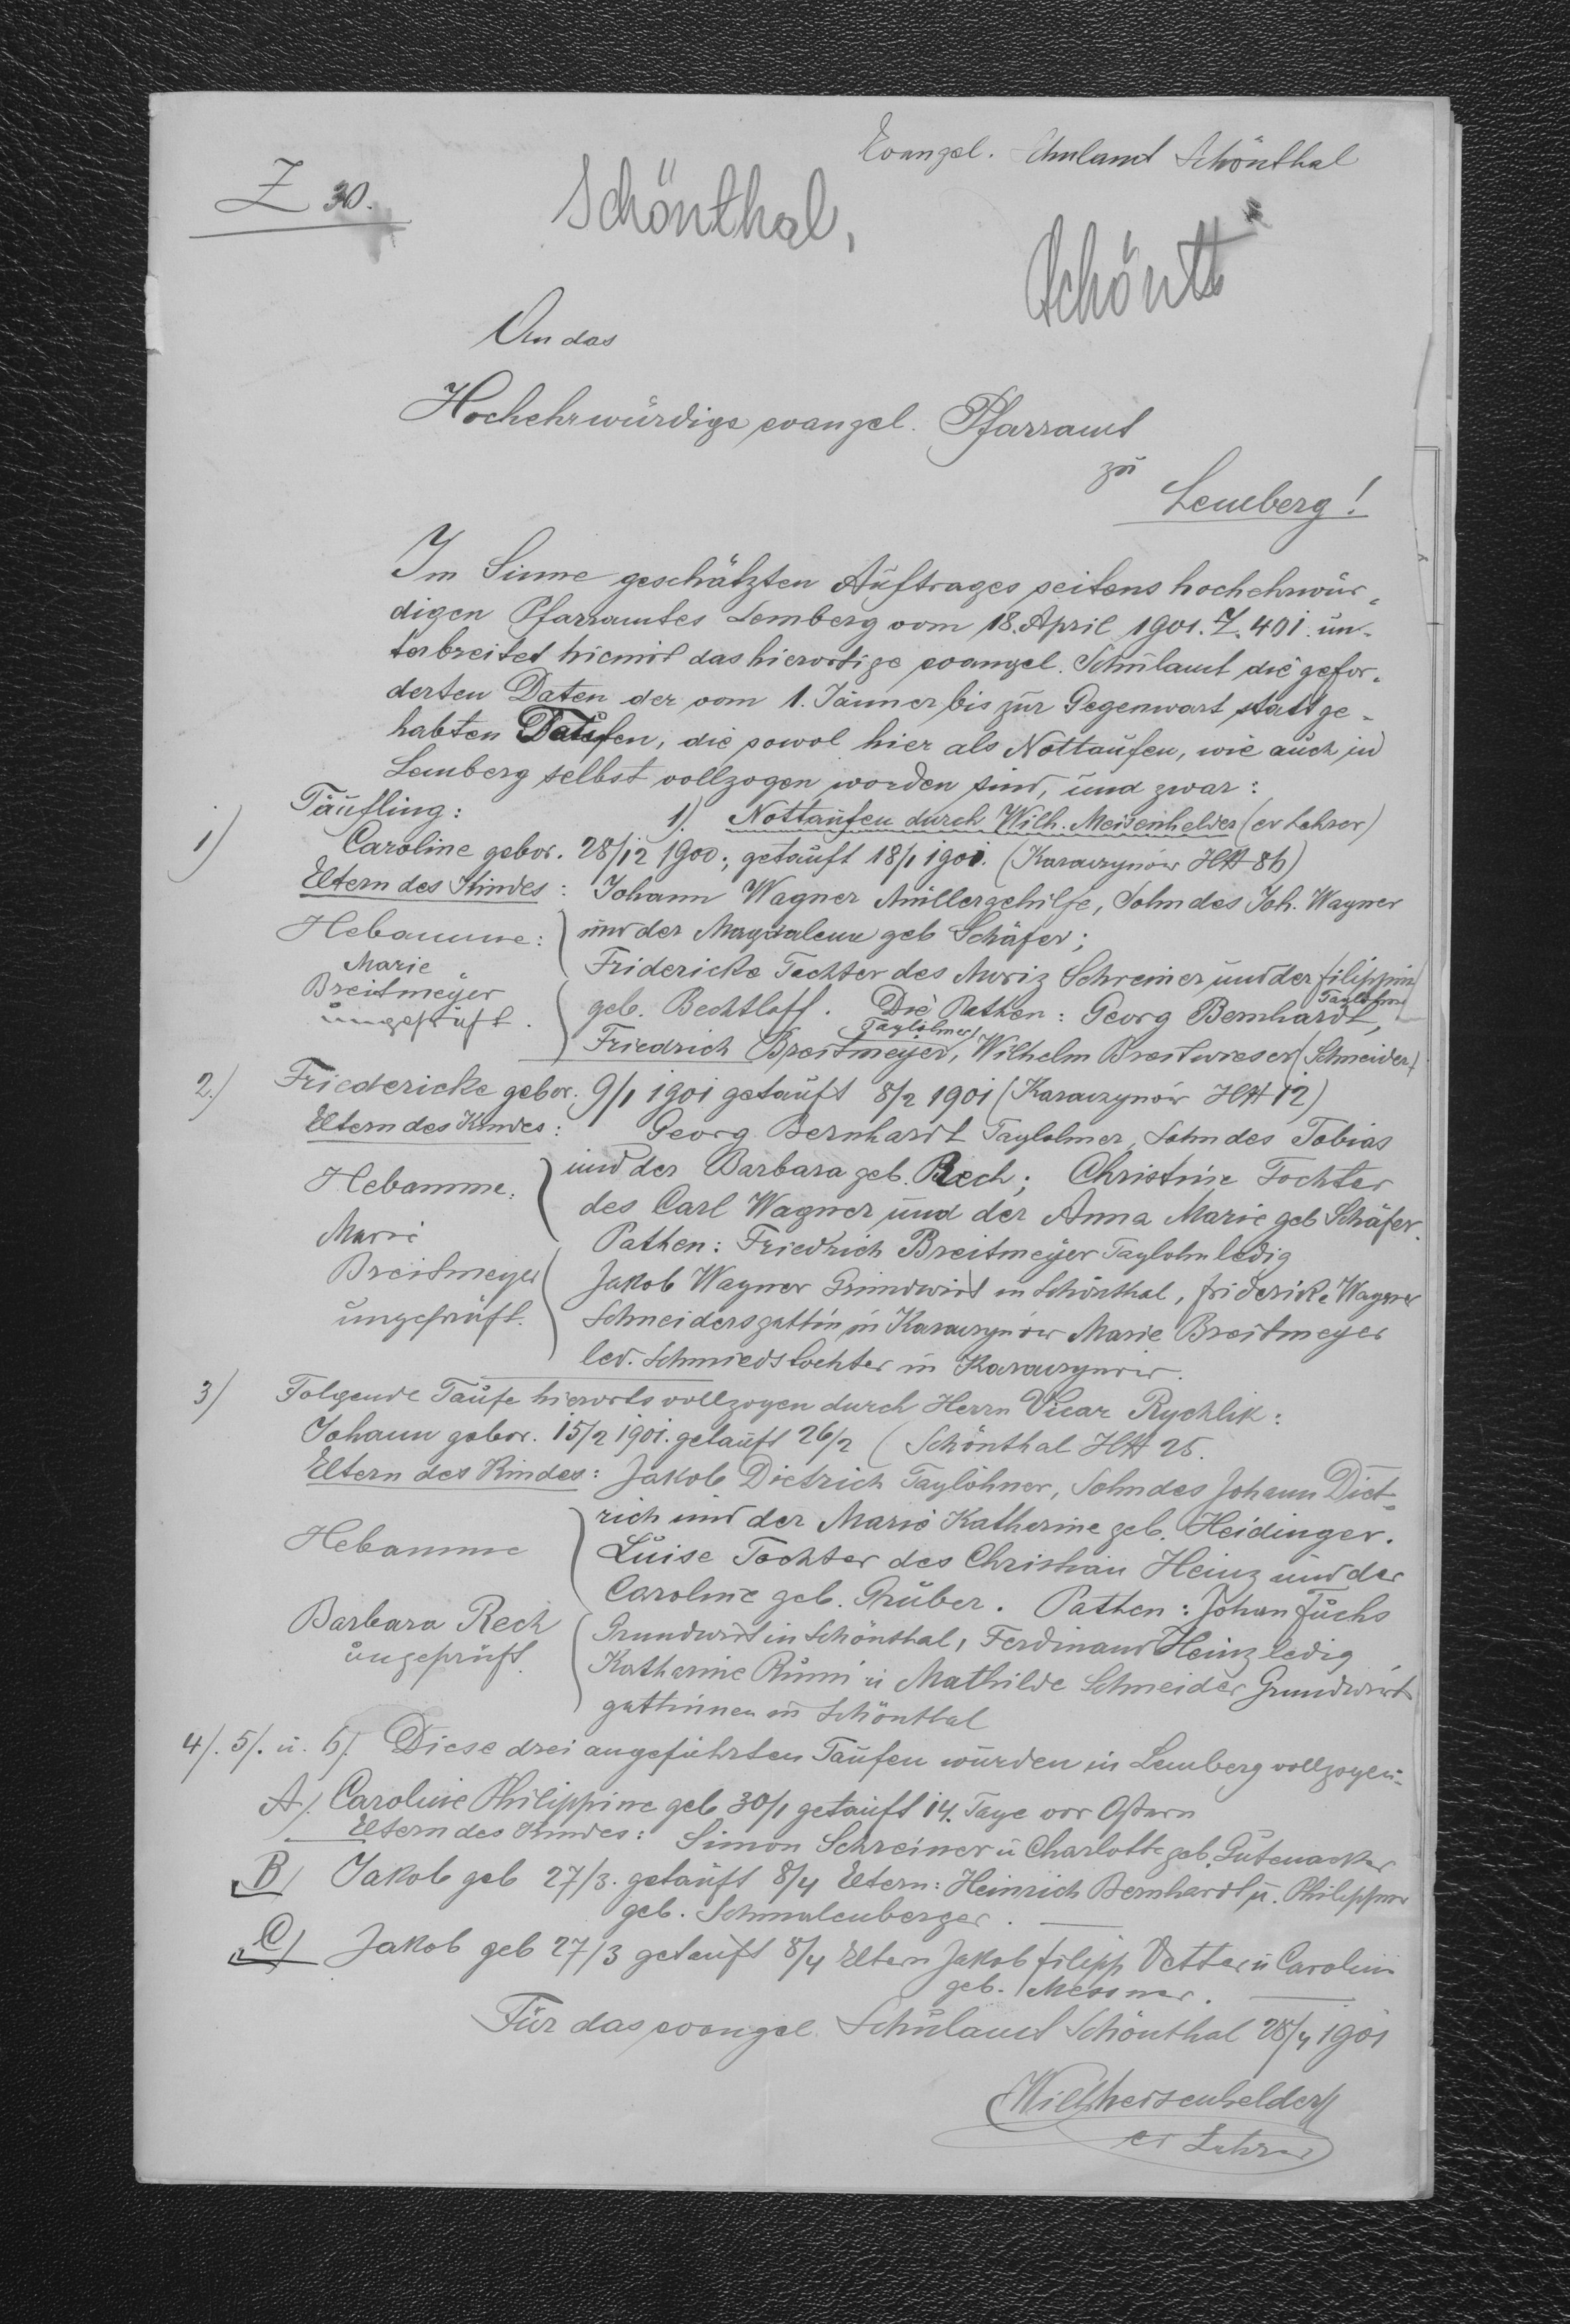 Evangel. Schulamt Schönthal
Z 30.
Schönthal,
Schöntt
An das
Hochehrwürdige evangel. Pfarramt
zu
Lemberg!
Im Sinne geschätzten Auftrages seitens hochehrwür-
digen Pfarramtes Lemberg vom 18. April 1901. Z. 401 un-
terbreitet hiemit das hierortige evangel. Schulamt die gefor-
derten Daten der vom 1. Jänner bis zur Gegenwart stattge-
habten Taufen, die sowol hier als Nottaufen, wie auch in
Lemberg selbst vollzogen worden sind, und zwar:
Täufling: 1). Nottaufen durch Wilh. Meisenhelder (ev Lehrer)
1) Caroline gebor. 28/12 1900; getauft 18/1 1901. (Karaczynów
Eltern des Kindes: Johann Wagner Müllergehilfe, Sohn des Joh. Wagner
Hebamme: und der Magdalena geb Schäfer;
Marie Fridericke Tochter des Moriz Schreiner und der Filippin
Breitmeÿer geb. Bechtloff. Die Pathen: Georg Bernhardt, Taglöhner
ungeprüft. Friedrich Breitmeÿer, Taglöhner, Wilhelm Breitwieser (Schneider)
2.) Friedericke gebor. 9/1 1901 getauft 8/2 1901 (Karaczynów HN 12)
Eltern des Kindes: Georg Bernhardt Taglohner, Sohn des Tobias
Hebamme: und der Barbara geb. Rech; Christine Tochter
des Carl Wagner und der Anna Marie geb Schäfer.
Marie Pathen: Friedrich Breitmeÿer Taglohn ledig
Breitmeyer Jakob Wagner Grundwirt in Schönthal, Fridericke Wagner
ungeprüft. Schneidersgattin in Karaczynów Marie Breitmeyer
led. Schmiedstochter in Karaczynów.
3) Folgende Taufe hierorts vollzogen durch Herrn Vicar Rychlik:
Johann gebor. 15/2 1901. getauft 26/2 (Schönthal HN 25.
Eltern des Kindes: Jakob Dietrich Taglöhner, Sohn des Johann Diet-
rich und der Marie Katherine geb. Heidinger.
Hebamme Luise Tochter des Christian Heinz und der
Caroline geb. Gruber. Pathen: Johan Fuchs
Barbara Rech Grundwirt in Schönthal, Ferdinand Heinz ledig
ungeprüft. Katharine Rumi u Mathilde Schneider Grundwirts
gattinnen in Schönthal
4/. 5/. u. 6/. Diese drei angeführten Taufen wurden in Lemberg vollzogen-
A/. Caroline Philippine geb 30/1 getauft 14. Tage vor Ostern
Eltern des Kindes: Simon Schreiner u Charlotte geb. Gutenacker
B/ Jakob geb 27/3. getauft 8/4 Eltern: Heinrich Bernhardt u. Philippine
geb. Schmalenberger.
C/ Jakob geb 27/3 getauft 8/4 Eltern Jakob Filipp Vetter u Carolin
geb. Messner.
Für das evangel. Schulamt Schönthal 28/4 1901
Wilh Meisenhelder
ev Lehrer